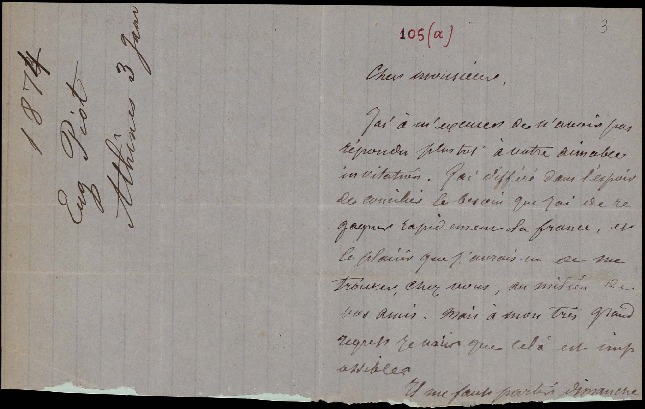 1874
Eug Piot
Athènes 3 Janv
105(a)
3
Cher monsieur,
J'ai à m'excuser de n'avoir pas
répondu plustot à votre aimable
invitation. J'ai différé dans l'espoir
de concilier le besoin que j'ai de re
gagner rapidement la france, et
le plaisir que j'aurais eu de me
trouver chez vous, au milieu de
vos amis. Mais à mon très grand
regret je vois que celà est imp
ossible.
Il me faut partir dimanche